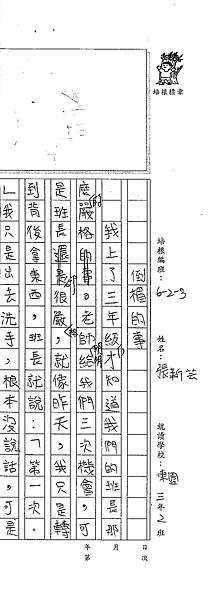 培根標章
培根編班：6-2-3
姓名：張新芸
就讀學校：東園
三年2班
日次
月
年第
倒楣的事
我上了三年級才知道我們的班長那
麼嚴格的
事。老師給我們三次機會，可
是班長還是很嚴，就像昨天，我只是轉
到背後拿東西，班長就說：「第一次。
」我只是出去洗手，根本沒說話，可是